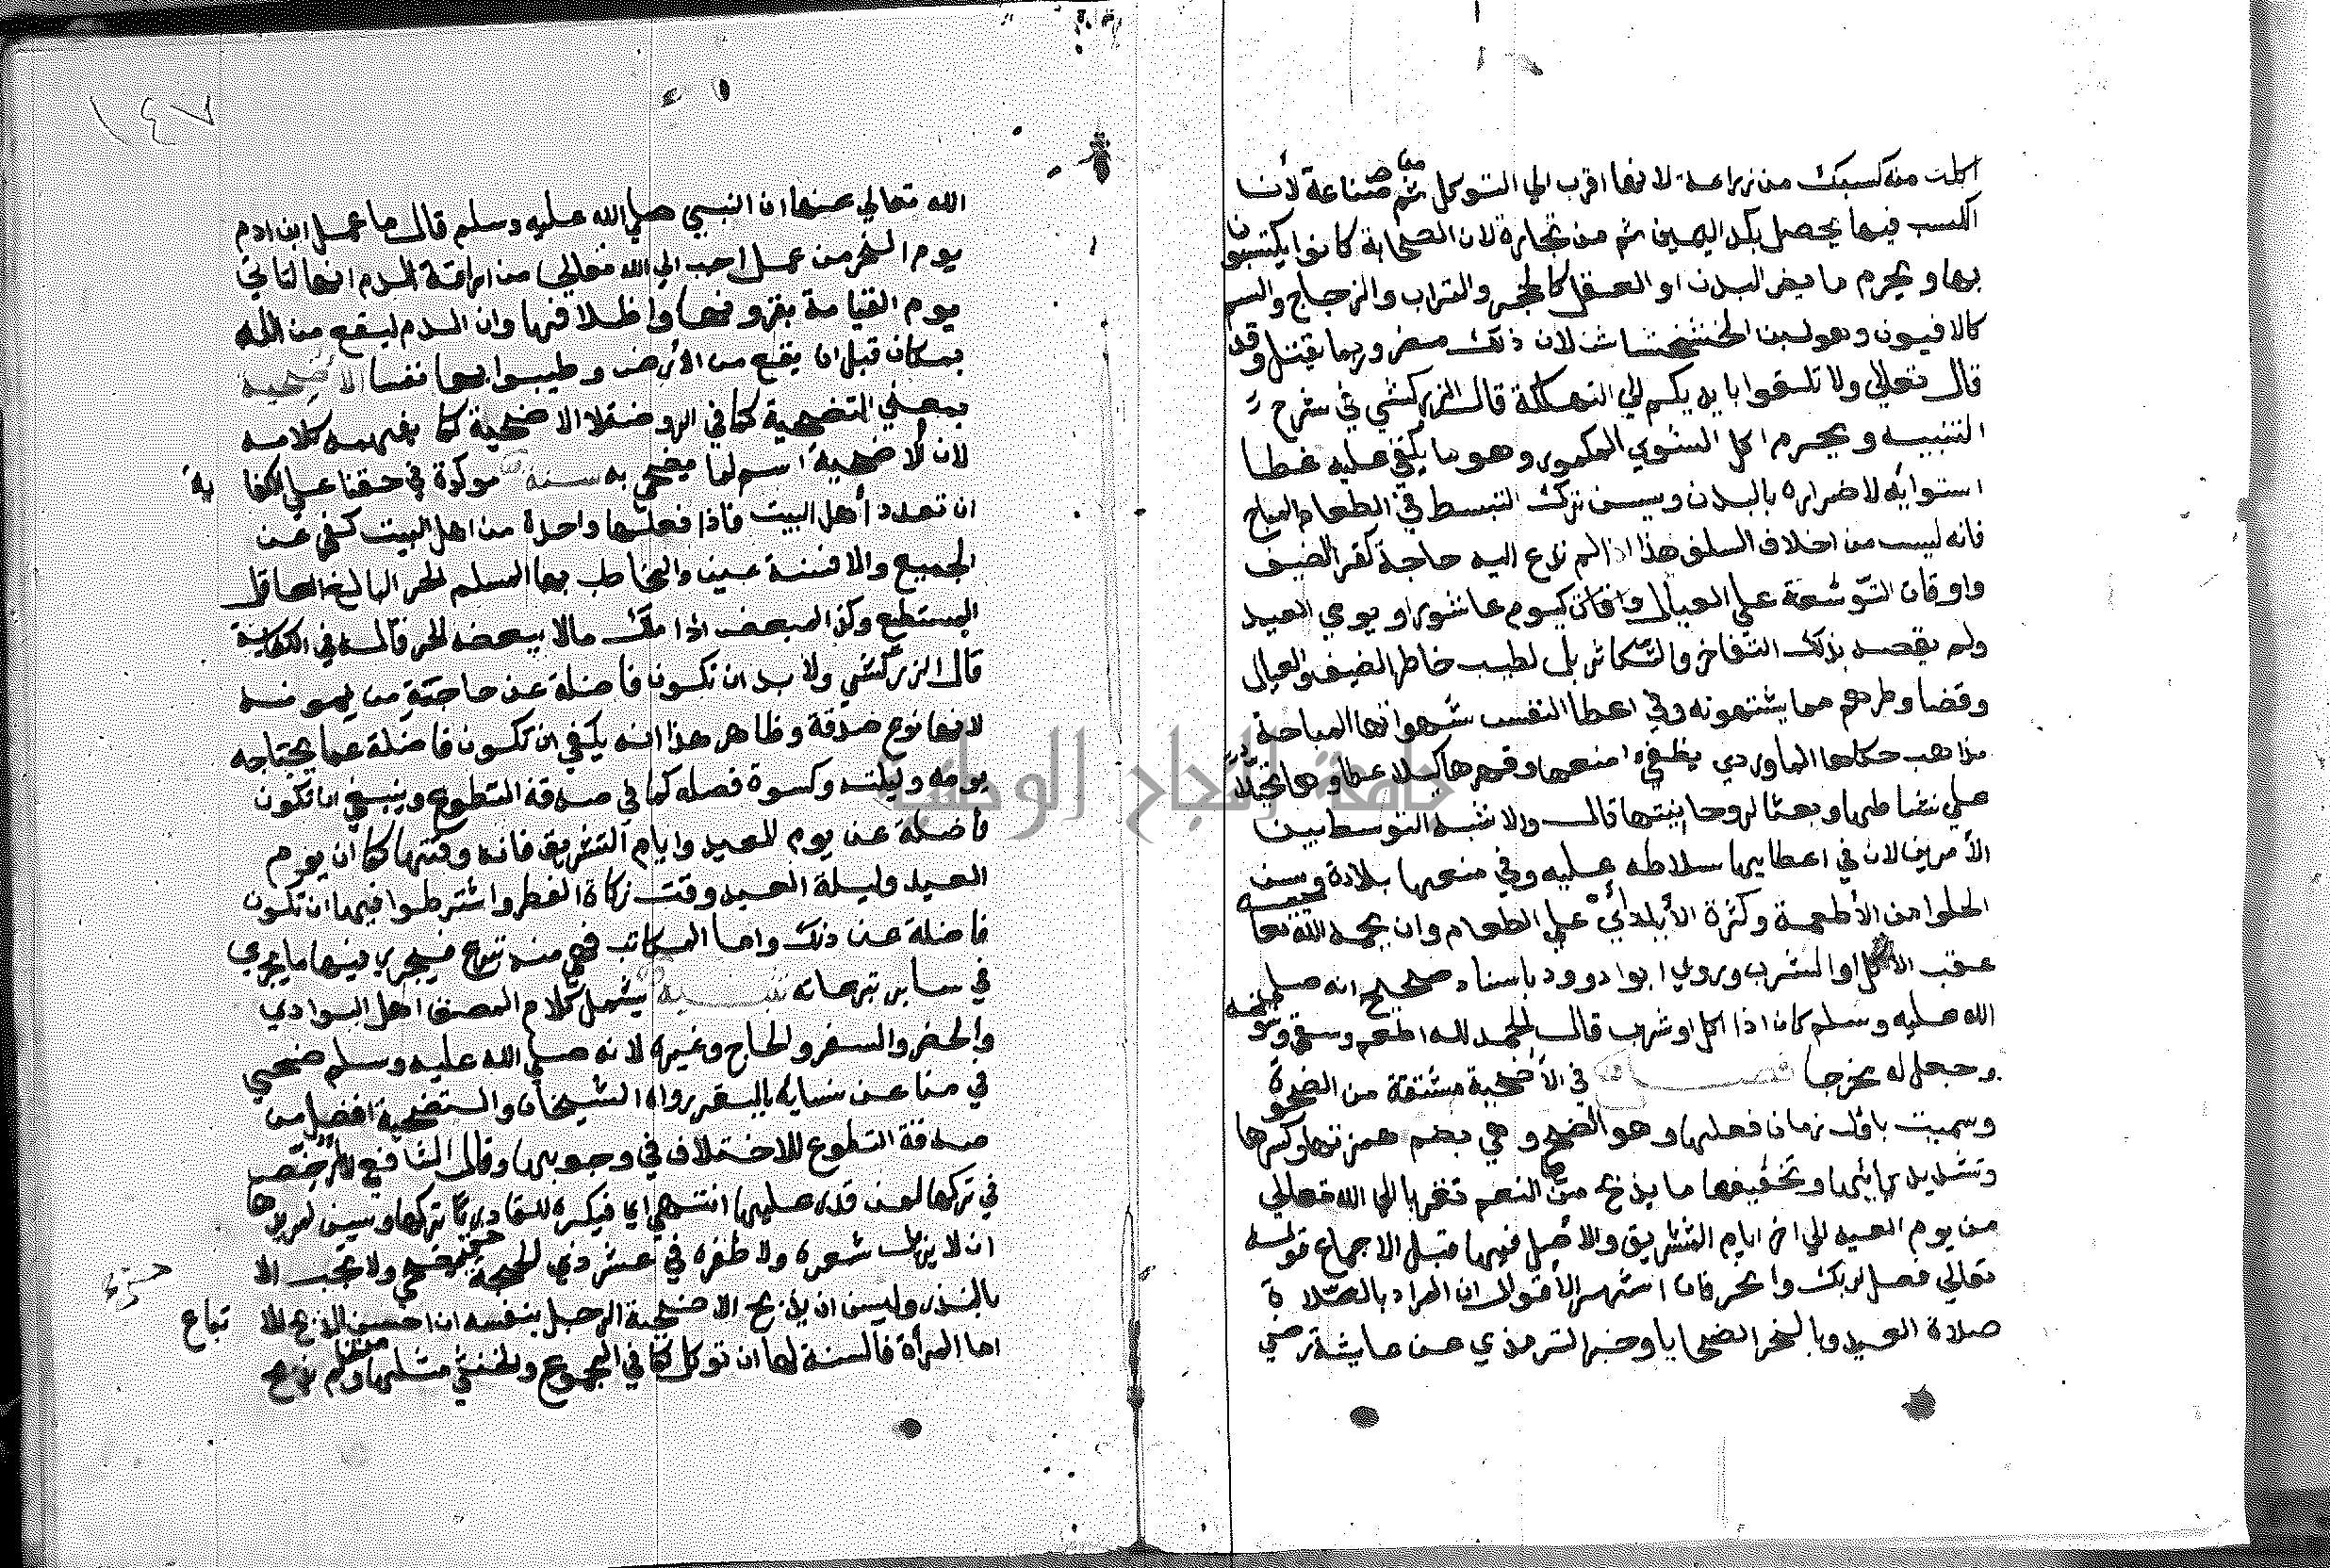 اكلت منه كسبك من زراعة لانها اقرب الي التوكل ثم من صناعة لأن
الكسب فيها يحصل بكد اليمين ثم من تجارة لان الصحابة كانوا يكتسبون
بها ويحرم ما يضر البدن او العقل كالحجر والتراب والزجاج والسم
كالافيون وهو لبن الخشخاش لان ذلك مضر وربما يقتل وقد
قال تعالي ولا تلقوا بايديكم الي التهلكة قال الزركشي في شرح
التنبيه ويحرم اكل الشوي المكمور وهو ما يكفي عليه غطا
استوايه لاضراره بالبدن ويسن ترك التبسط في الطعام المباح
فانه ليس من اخلاق السلف هذا اذا لم تدع اليه حاجة كقر الضيف
واوقات التوسعة علي العيال كيوم عاشورا ويومي العيد
ولم يقصد بذلك التفاخر والتكاثر بل لطيب خاطر الضيف والعيال
وقضا وطرهم مما يشتهونه وفي اعطا النفس شهواتها المباحة
مذاهب حكاها الماوردي منعها وقهرها كيلا تطغي اعطاوها تحيلا
علي نشاطها وبعثا لروحانيتها قال والاشبه التوسط بين
الأمرين لان في اعطايها سلاطه عليه وفي منعها بلادة ويسن
الحلوا من الأطعمة وكثرة الأيدي علي الطعام وان يحمد الله تعا
عقب الاكل او الشرب وروي ابوا دوود باسناد صحيح انه صلي
الله عليه وسلم كان اذا اكل او شرب قال الحمد لله اطعم وسقي وسوغه
وجعل له مخرجا فصل في الأضحية مشتقة من الضحوة
وسميت باول زمان فعلها وهو الضحي وهي بضم همزتها وكسرها
وتشديد يائها وتخفيفها ما يذبح من النعم تقربا الي الله تعالي
من يوم العيد الي اخر ايام التشريق والأصل فيها قبل الاجماع قوله
تعالي فصل لربك وانحر فان اشهر الأقوال ان المراد بالصلاة
صلاة العيد وبالنحر الضحايا وخبر الترمذي عن عايشة رضي
الله تعالي عنها ان النبي صلي الله عليه وسلم قال ما عمل ابن ادم
يوم النحر من عمل احب الي الله تعالي من اراقة الدم انها لتاتي
يوم القيامة بقرونها واظلافها وان الدم ليقع من الله
بمكان قبل ان يقع من الأرض وطيبوا بها نفسا الأضحية
بمعني التضحية كما في الروضة لا الاضحية كما يفهمه كلامه
لان الأضحية اسم لما يضحي به سنة موكدة في حقنا علي الكفاية
ان تعدد أهل البيت فاذا فعلها واحدة من اهل البيت كفي عن
الجميع والا فسنة عين والمخاطب بها المسلم الحر البالغ العاقل
المستطيع وكذا المبعض اذا ملك مالا ببعضه الحر قاله في الكفاية
قال الزركشي ولا بد ان تكون فاضلة عن حاجته من يمونه
لانها نوع صدقة وظاهر هذا انه يكفي ان تكون فاضلة عما يحتاجه
يومه وليلته وكسوة فصله كما في صدقة التطوع وينبغي ان تكون
فاضلة عن يوم العيد وايام التشريق فانه وقتها كما ان يوم
العيد وليلة العيد وقت زكاة الفطر واشترطوا فيها ان تكون
فاضلة عن ذلك واما المكاتب فهي منه تبرع فيجري فيها ما يجري
في ساير تبرعاته تنبيه يشمل كلام المصنف اهل البوادي
والحضر والسفر والحاج وغيره لانه صلي الله عليه وسلم ضحي
في منا عن نسايه بالبقر رواه الشيخان والتضحية افضل من
صدقة التطوع للاختلاف في وجوبها وقال الشافعي لا ارخص
في تركها لمن قدر عليها انتهي اي فيكره للقادر تركها ويسن لمريدها
ان لا يزيل شعره ولا ظفره في عشر ذي الحجة حتي يضحي ولا تجب الا
بالنذر ويسن ان يذبح الاضحية الرجل بنفسه ان احسن الذبح للا تباع
اما المرأة فالسنة لها ان توكل كما في المجموع والخنثي مثلها